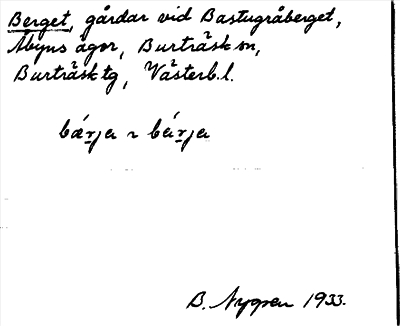 Berget, gårdar vid Bastugråberget,
Åbyns ägor, Burträsk sn,
Burträsk tg, Västerb.l.
bǽrja ~ bérja
B. Nygren 1933.